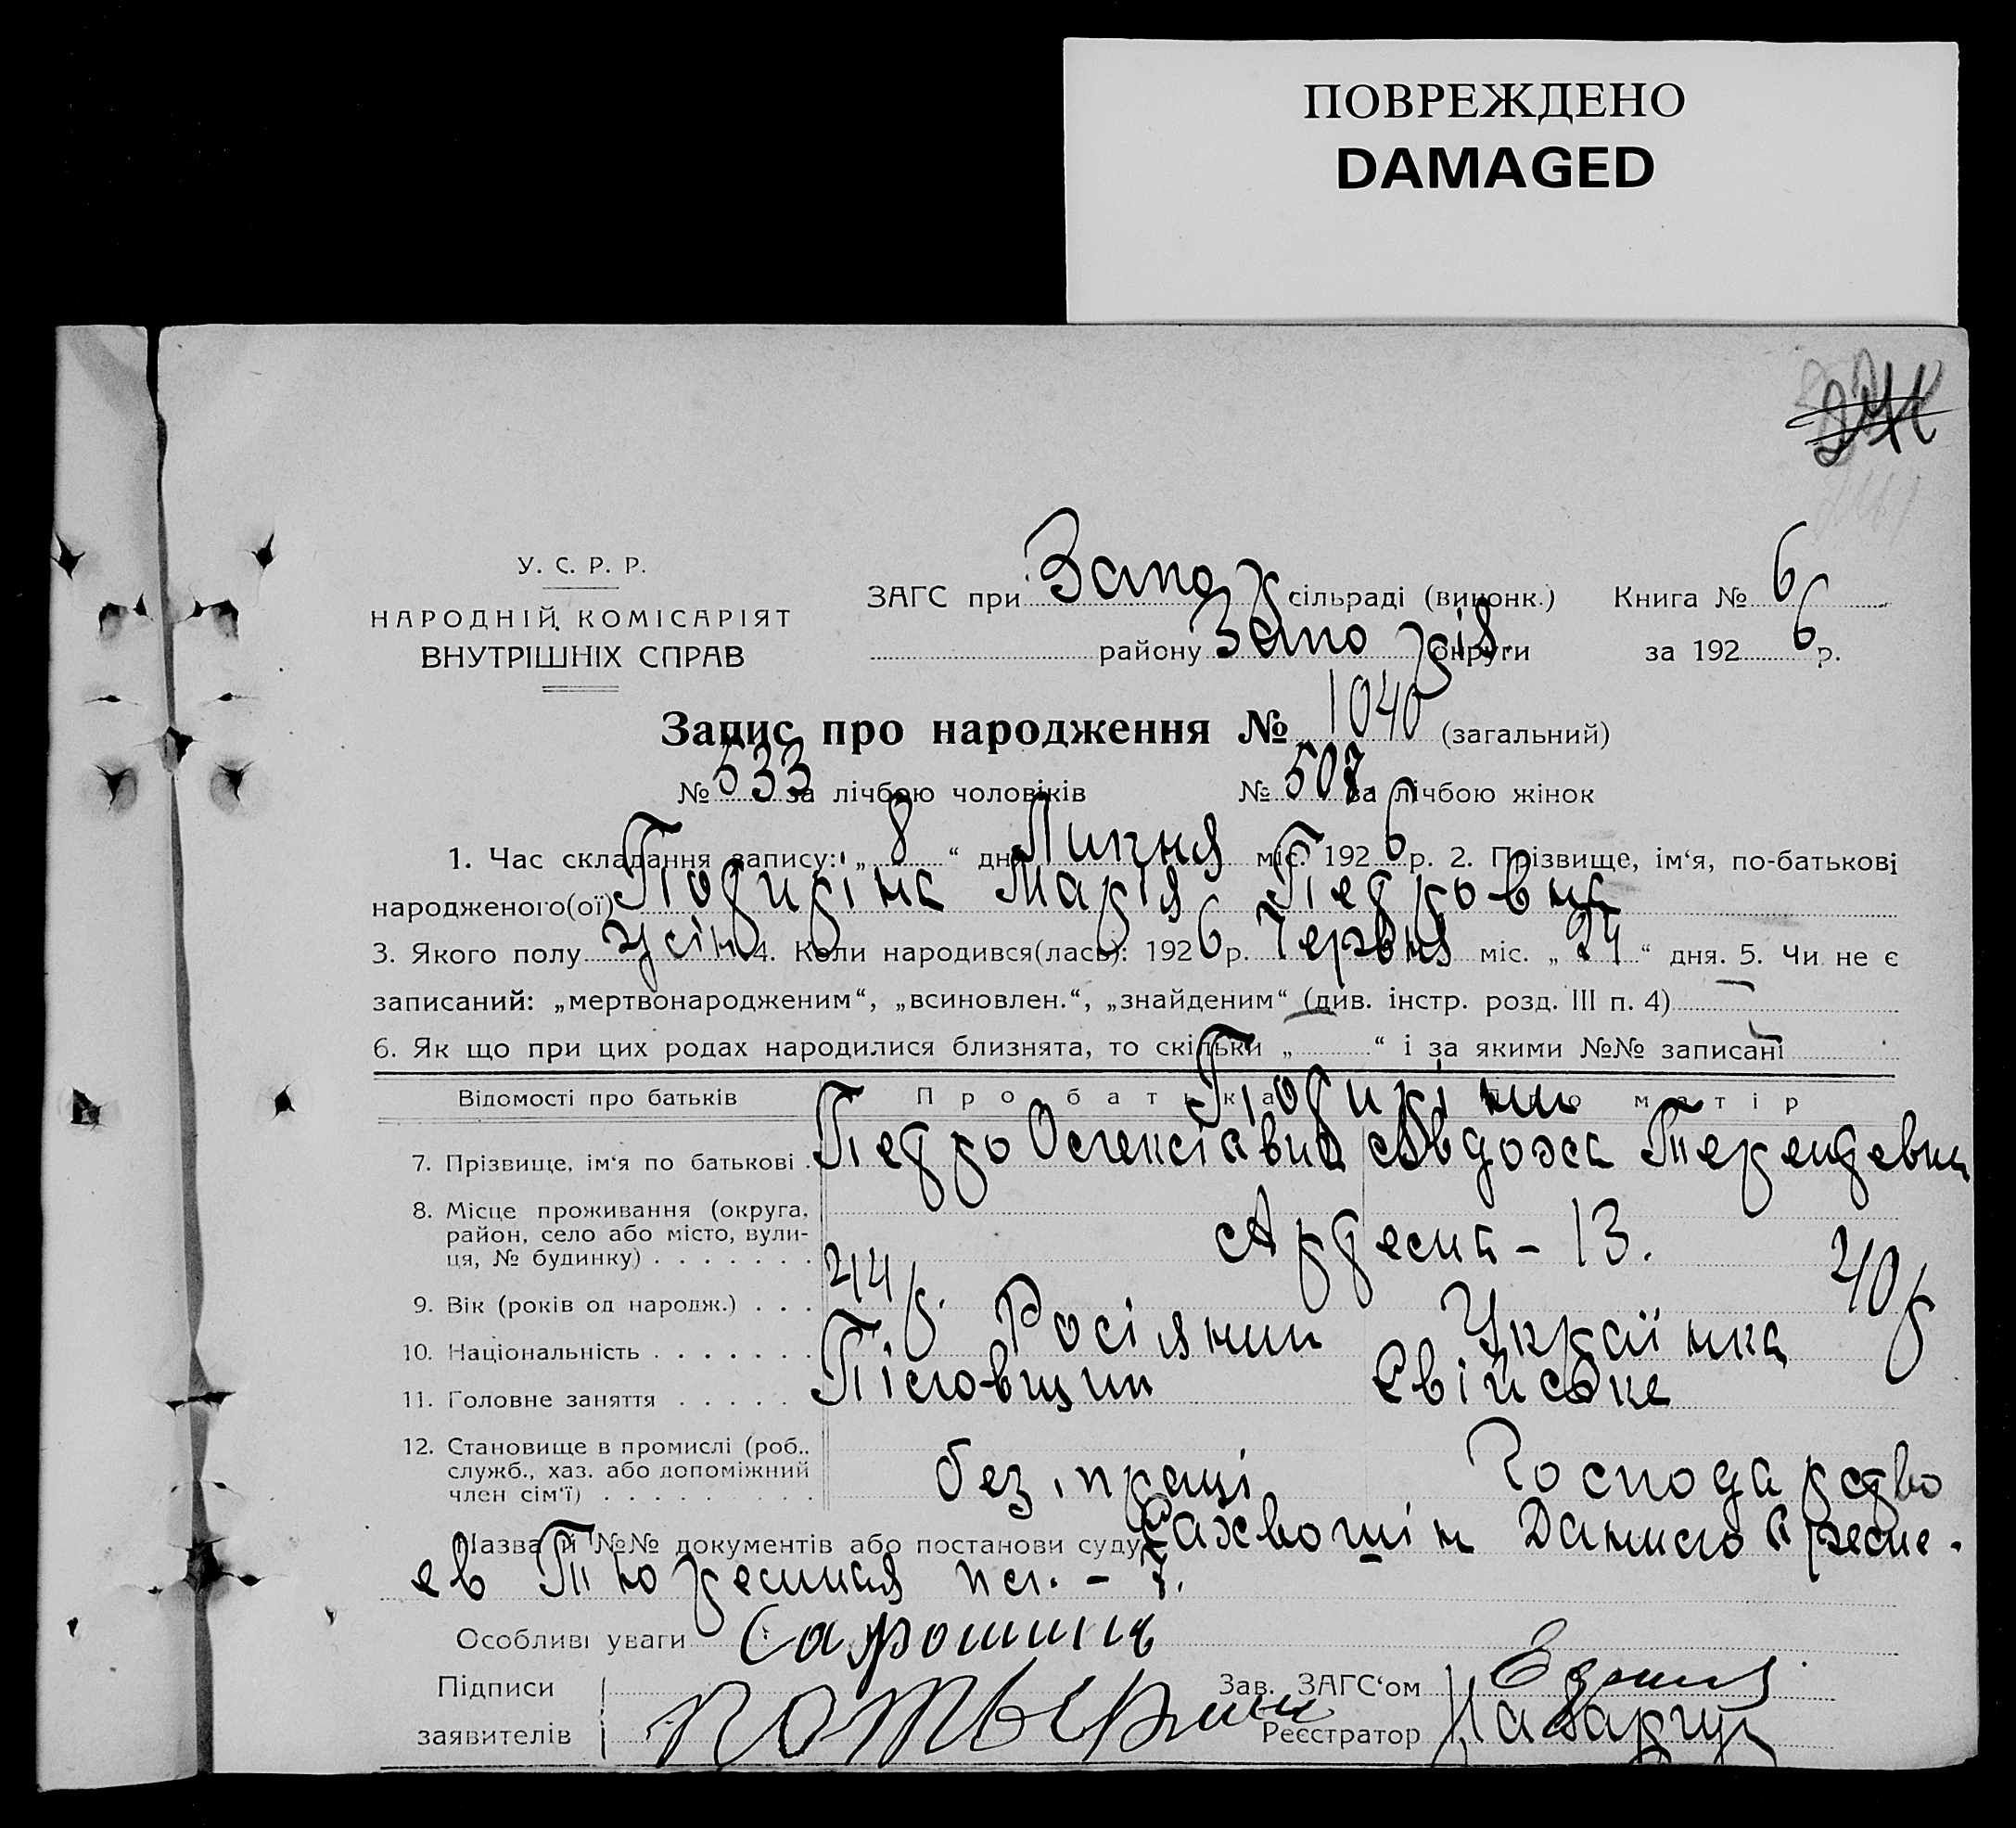 ПОВРЕЖДЕНО
DAMAGED
У. С. Р. Р.
НАРОДНІЙ КОМІСАРІЯТ
ВНУТРІШНІХ СПРАВ
ЗАГС при Запор сільраді (виконк.) Книга № 6
району Запоріз. округи за 1926 р.
Запис про народження № 1040 (загальний)
№ 533 за лічбою чоловіків № 507 за лічбою жінок
1. Час складання запису: „ 8 “ дня Липня міс. 1926 р. 2. Прізвище, ім‘я, по-батькові
народженого(ої) Марія Петровна
3. Якого полу 4. Коли народився(лась): 1926 р. Червня міс. „ 24 “ дня. 5. Чи не є
записаний: „мертвонародженим“, „всиновлен.“, „знайденим“ (див. інстр. розд. III п. 4)
6. Як що при цих родах народилися близнята, то скільки „ “ і за якими №№ записані
Відомості про батьків Про батька Про матір
7. Прізвище, ім‘я по батькові Петро Авдотя
8. Місце проживання (округа,
район, село або місто, вули-
ця, № будинку) - 13.
9. Вік (років од народж.) 44 р. 40 р
10. Національність Росіянин Українка
11. Головне заняття Свійське
12. Становище в промислі (роб.,
служб., хаз. або допоміжний
член сім‘ї) без праці Господарство
Назва й №№ документів або постанови суду Данило
ев - 7.
Особливі уваги
Підписи Зав. ЗАГС‘ом
заявителів Реєстратор